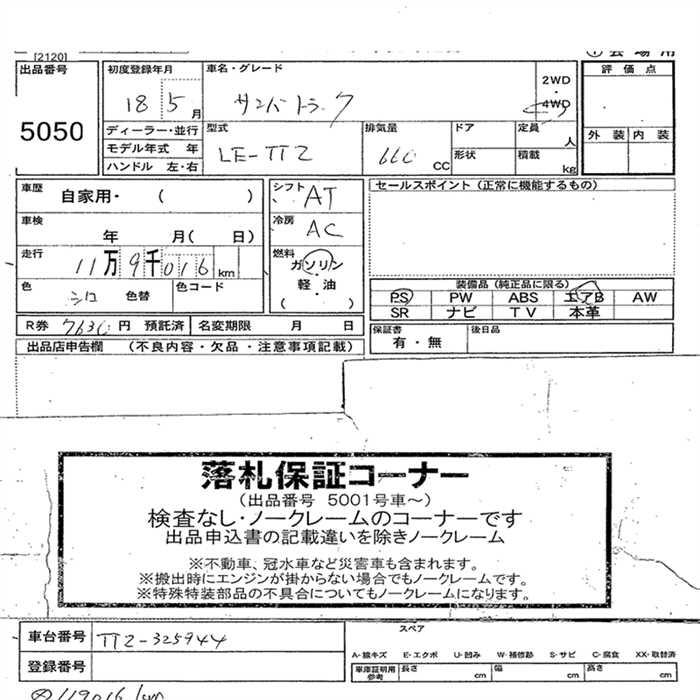 [2120]
出品番号
5050
初度登録年月
18 5月
車名・グレード
サンバートラック
2WD
・
4WD
評価点
外装 内装
ディーラー・並行
モデル年式 年
ハンドル 左・右
型式
LE-TT2
排気量
660 CC
ドア
形状
定員
人
積載
kg
車歴
自家用・ ( )
車検
年 月( 日)
走行
11万9千016km
色
シロ 色替
色コード
シフト AT
冷房 AC
燃料
ガソリン
・
軽・油
( )
R券 7630円 預託済
名変期限 月 日
セールスポイント (正常に機能するもの)
装備品 (純正品に限る)
PS PW ABS エアB AW
SR ナビ TV 本革
保証書
有・無
後日品
出品店申告欄 (不良内容・欠品・注意事項記載)
落札保証コーナー
(出品番号 5001号車～)
検査なし・ノークレームのコーナーです
出品申込書の記載違いを除きノークレーム
※不動車、冠水車など災害車も含まれます。
※搬出時にエンジンが掛からない場合でもノークレームです。
※特殊特装部品の不具合についてもノークレームになります。
車台番号 TT2-325944
登録番号
スペア
A-線キズ E-エクボ U-凹み W-補修跡 S-サビ C-腐食 XX-取替済
車庫証明用
参考
長さ cm 幅 cm 高さ cm
119016 km